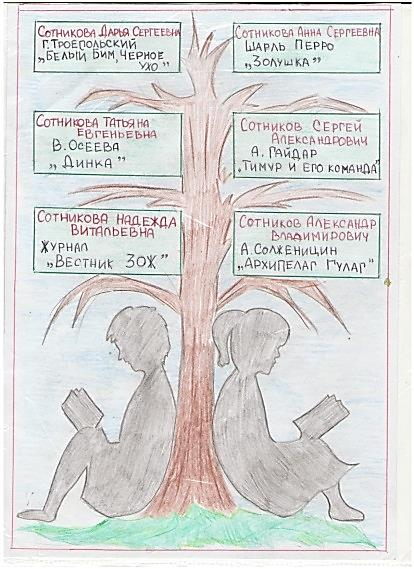 Сотникова Дарья Сергеевна
Г. Троепольский
„Белый Бим, Черное
ухо"
Сотникова Анна Сергеевна
Шарль Перро
„Золушка"
Сотникова Татьяна
Евгеньевна
В. Осеева
„Динка"
Сотников Сергей
Александрович
А. Гайдар
„Тимур и его команда"
Сотникова Надежда
Витальевна
Журнал
„Вестник ЗОЖ"
Сотников Александр
Владимирович
А. Солженицин
„Архипелаг Гулаг"